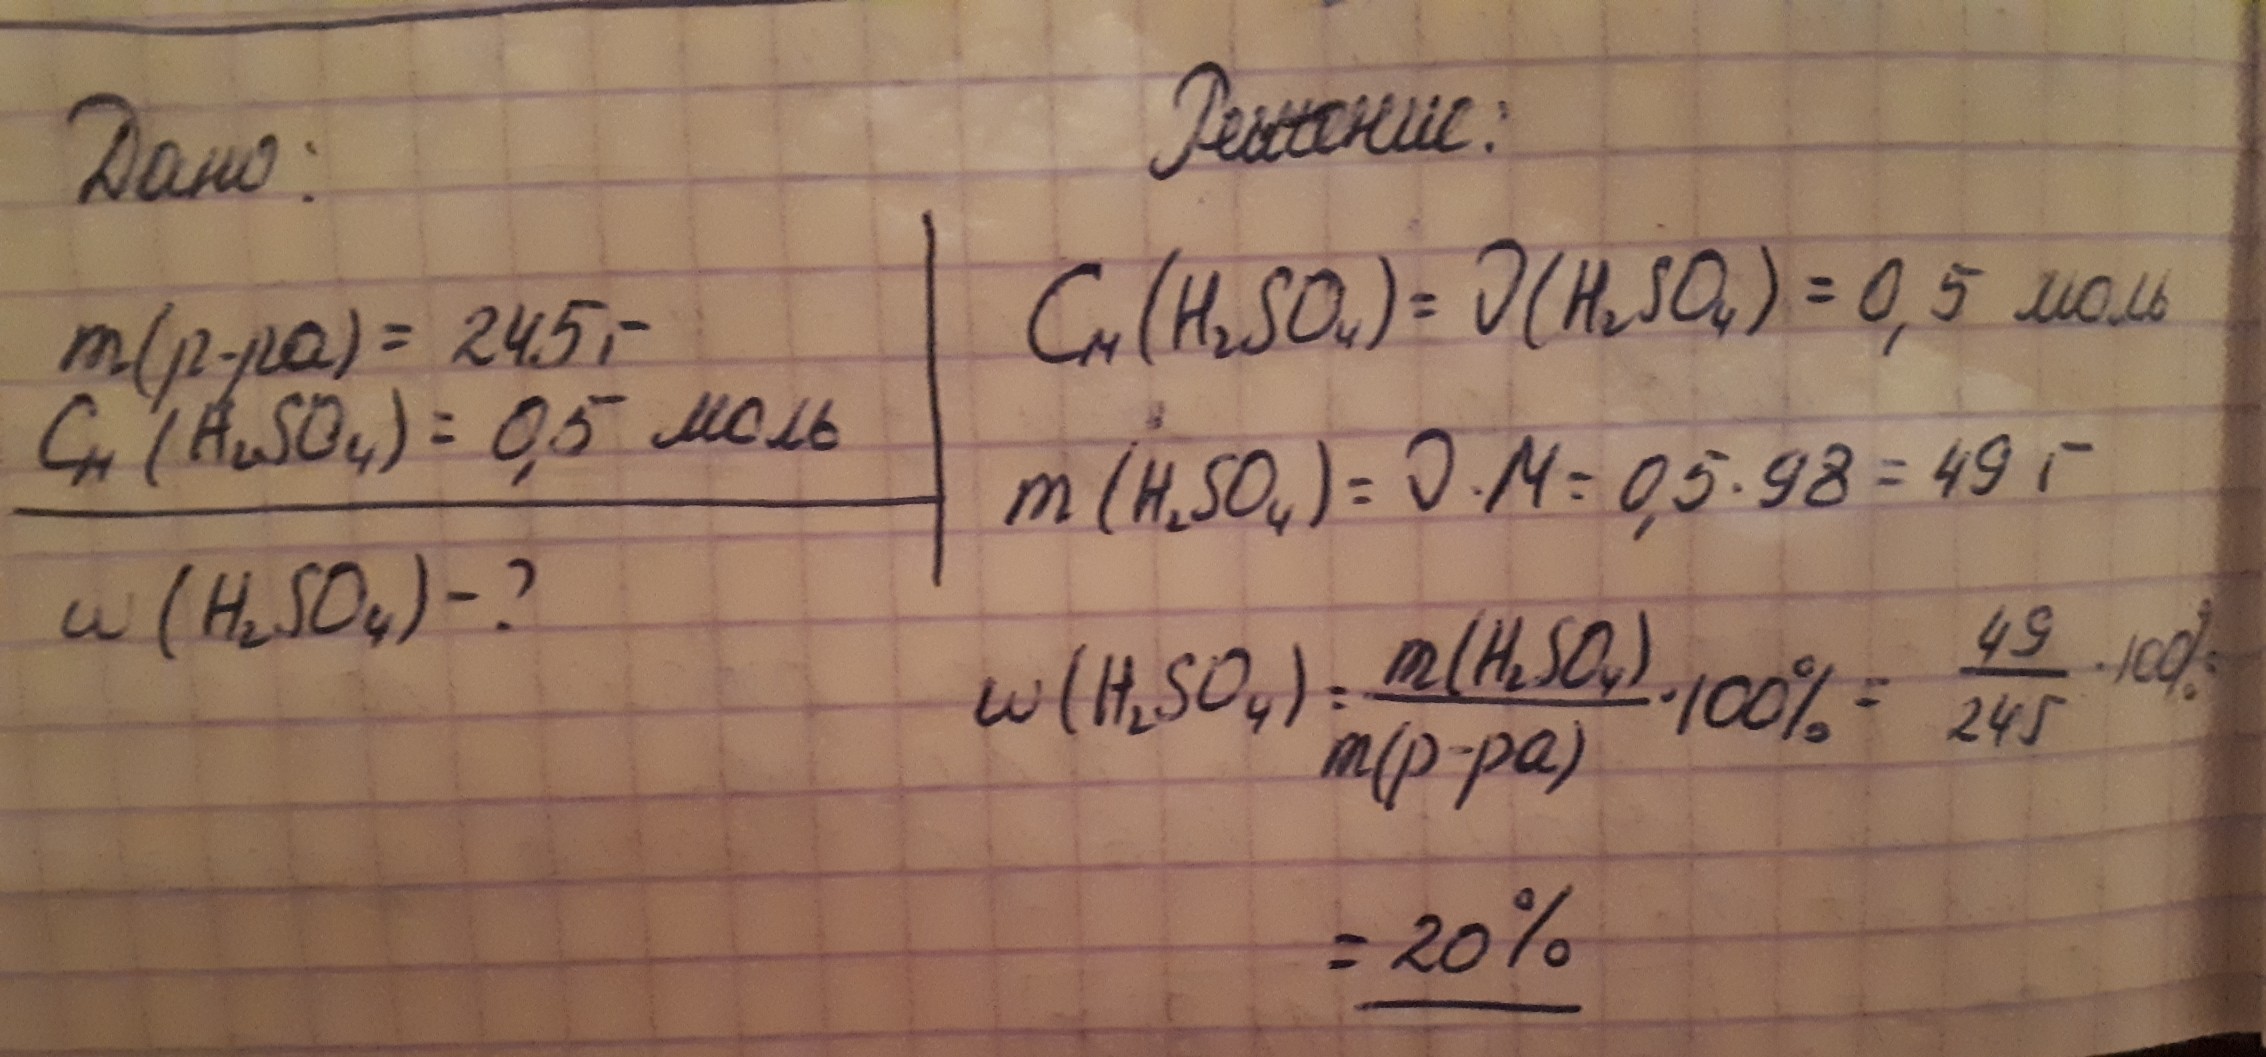 Дано:
m(р-ра) = 245 г
Cм (H₂SO₄) = 0,5 моль
w (H₂SO₄) - ?
Решение:
Cм (H₂SO₄) = ν(H₂SO₄) = 0,5 моль
m (H₂SO₄) = ν · M = 0,5 · 98 = 49 г
w (H₂SO₄) = m(H₂SO₄) / m(р-ра) · 100% = 49 / 245 · 100% =
= 20%